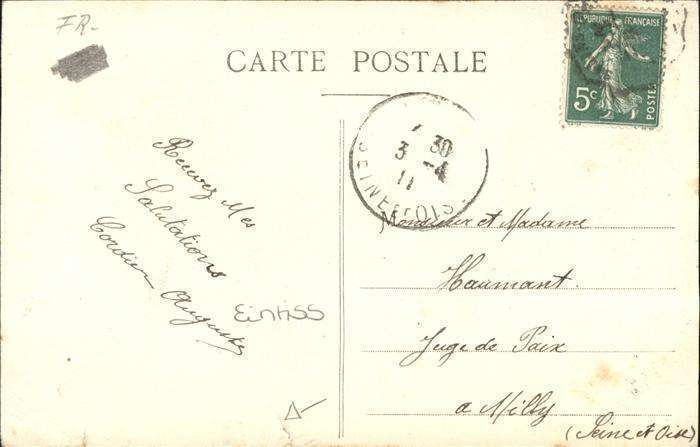 FR-
CARTE POSTALE
RÉPUBLIQUE FRANÇAISE
5c
POSTES
7 30
3 -4
11
SEINE ET OISE
Recevez Mes
Salutations
Cordier Auguste
M Monsieur et Madame
Haumant
Juge de Paix
a Milly
(Seine et Oise)